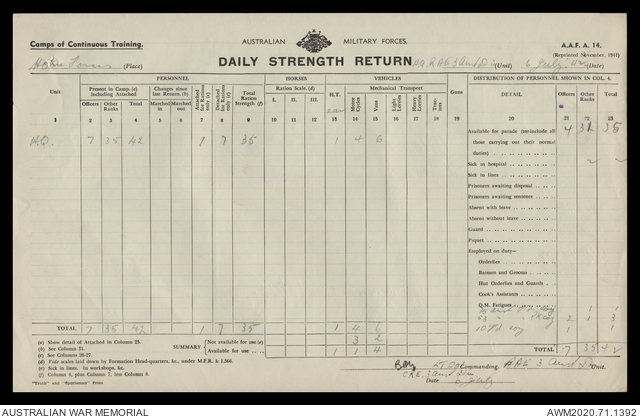 AUSTRALIAN MILITARY FORCES.
Camps of Continuous Training.
A.A.F. A. 14.
(Reprinted November, 1941)
DAILY STRENGTH RETURN
(Place)
(Unit) 6 July 42 (Date)
PERSONNEL
HORSES
VEHICLES
DISTRIBUTION OF PERSONNEL SHOWN IN COL. 4.
Unit
Present in Camp. (a) including Attached
Changes since last Return. (b)
Attached for Rations only (c)
Detached for Rations only (c)
Total Ration Strength (f)
Ration Scale. (d)
H.T.
Mechanical Transport
Guns
DETAIL
Officers
Other Ranks
Total
Officers
Other Ranks
Total
Marched in
Marched out
I.
II.
III.
Motor Cycles
Vans
Light Lorries
Heavy Lorries
Tractors
1 2 3 4 5 6 7 8 9 10 11 12 13 14 15 16 17 18 19 20 21 22 23
H.Q. 7 35 42 1 7 35 1 4 6
Available for parade (to include all those carrying out their normal duties) 4 31 35
Sick in hospital
Sick in lines
Prisoners awaiting disposal
Prisoners awaiting sentence
Absent with leave
Absent without leave
Guard
Piquet
Employed on duty—
Orderlies
Batmen and Grooms
Hut Orderlies and Guards
Cook's Assistants
Q.M. Fatigues
2 1 3
10 Fd Coy 1 1
TOTAL 7 35 42 1 7 35 1 4 6
SUMMARY
Not available for use (e) 3 2
Available for use 1 1 4
TOTAL 7 35 42
(a) Show detail of Attached in Column 25.
(b) See Column 31.
(c) See Columns 26-27.
(d) Pide scales laid down by Formation Head-quarters, &c., under M.F.R. & I.366.
(e) Sick in lines. In workshops, &c.
(f) Column 4, plus Column 7, less Column 8.
Commanding
Unit.
C.R.E. 3 Aust Div
Date 6 July
AUSTRALIAN WAR MEMORIAL
AWM2020.71.1392